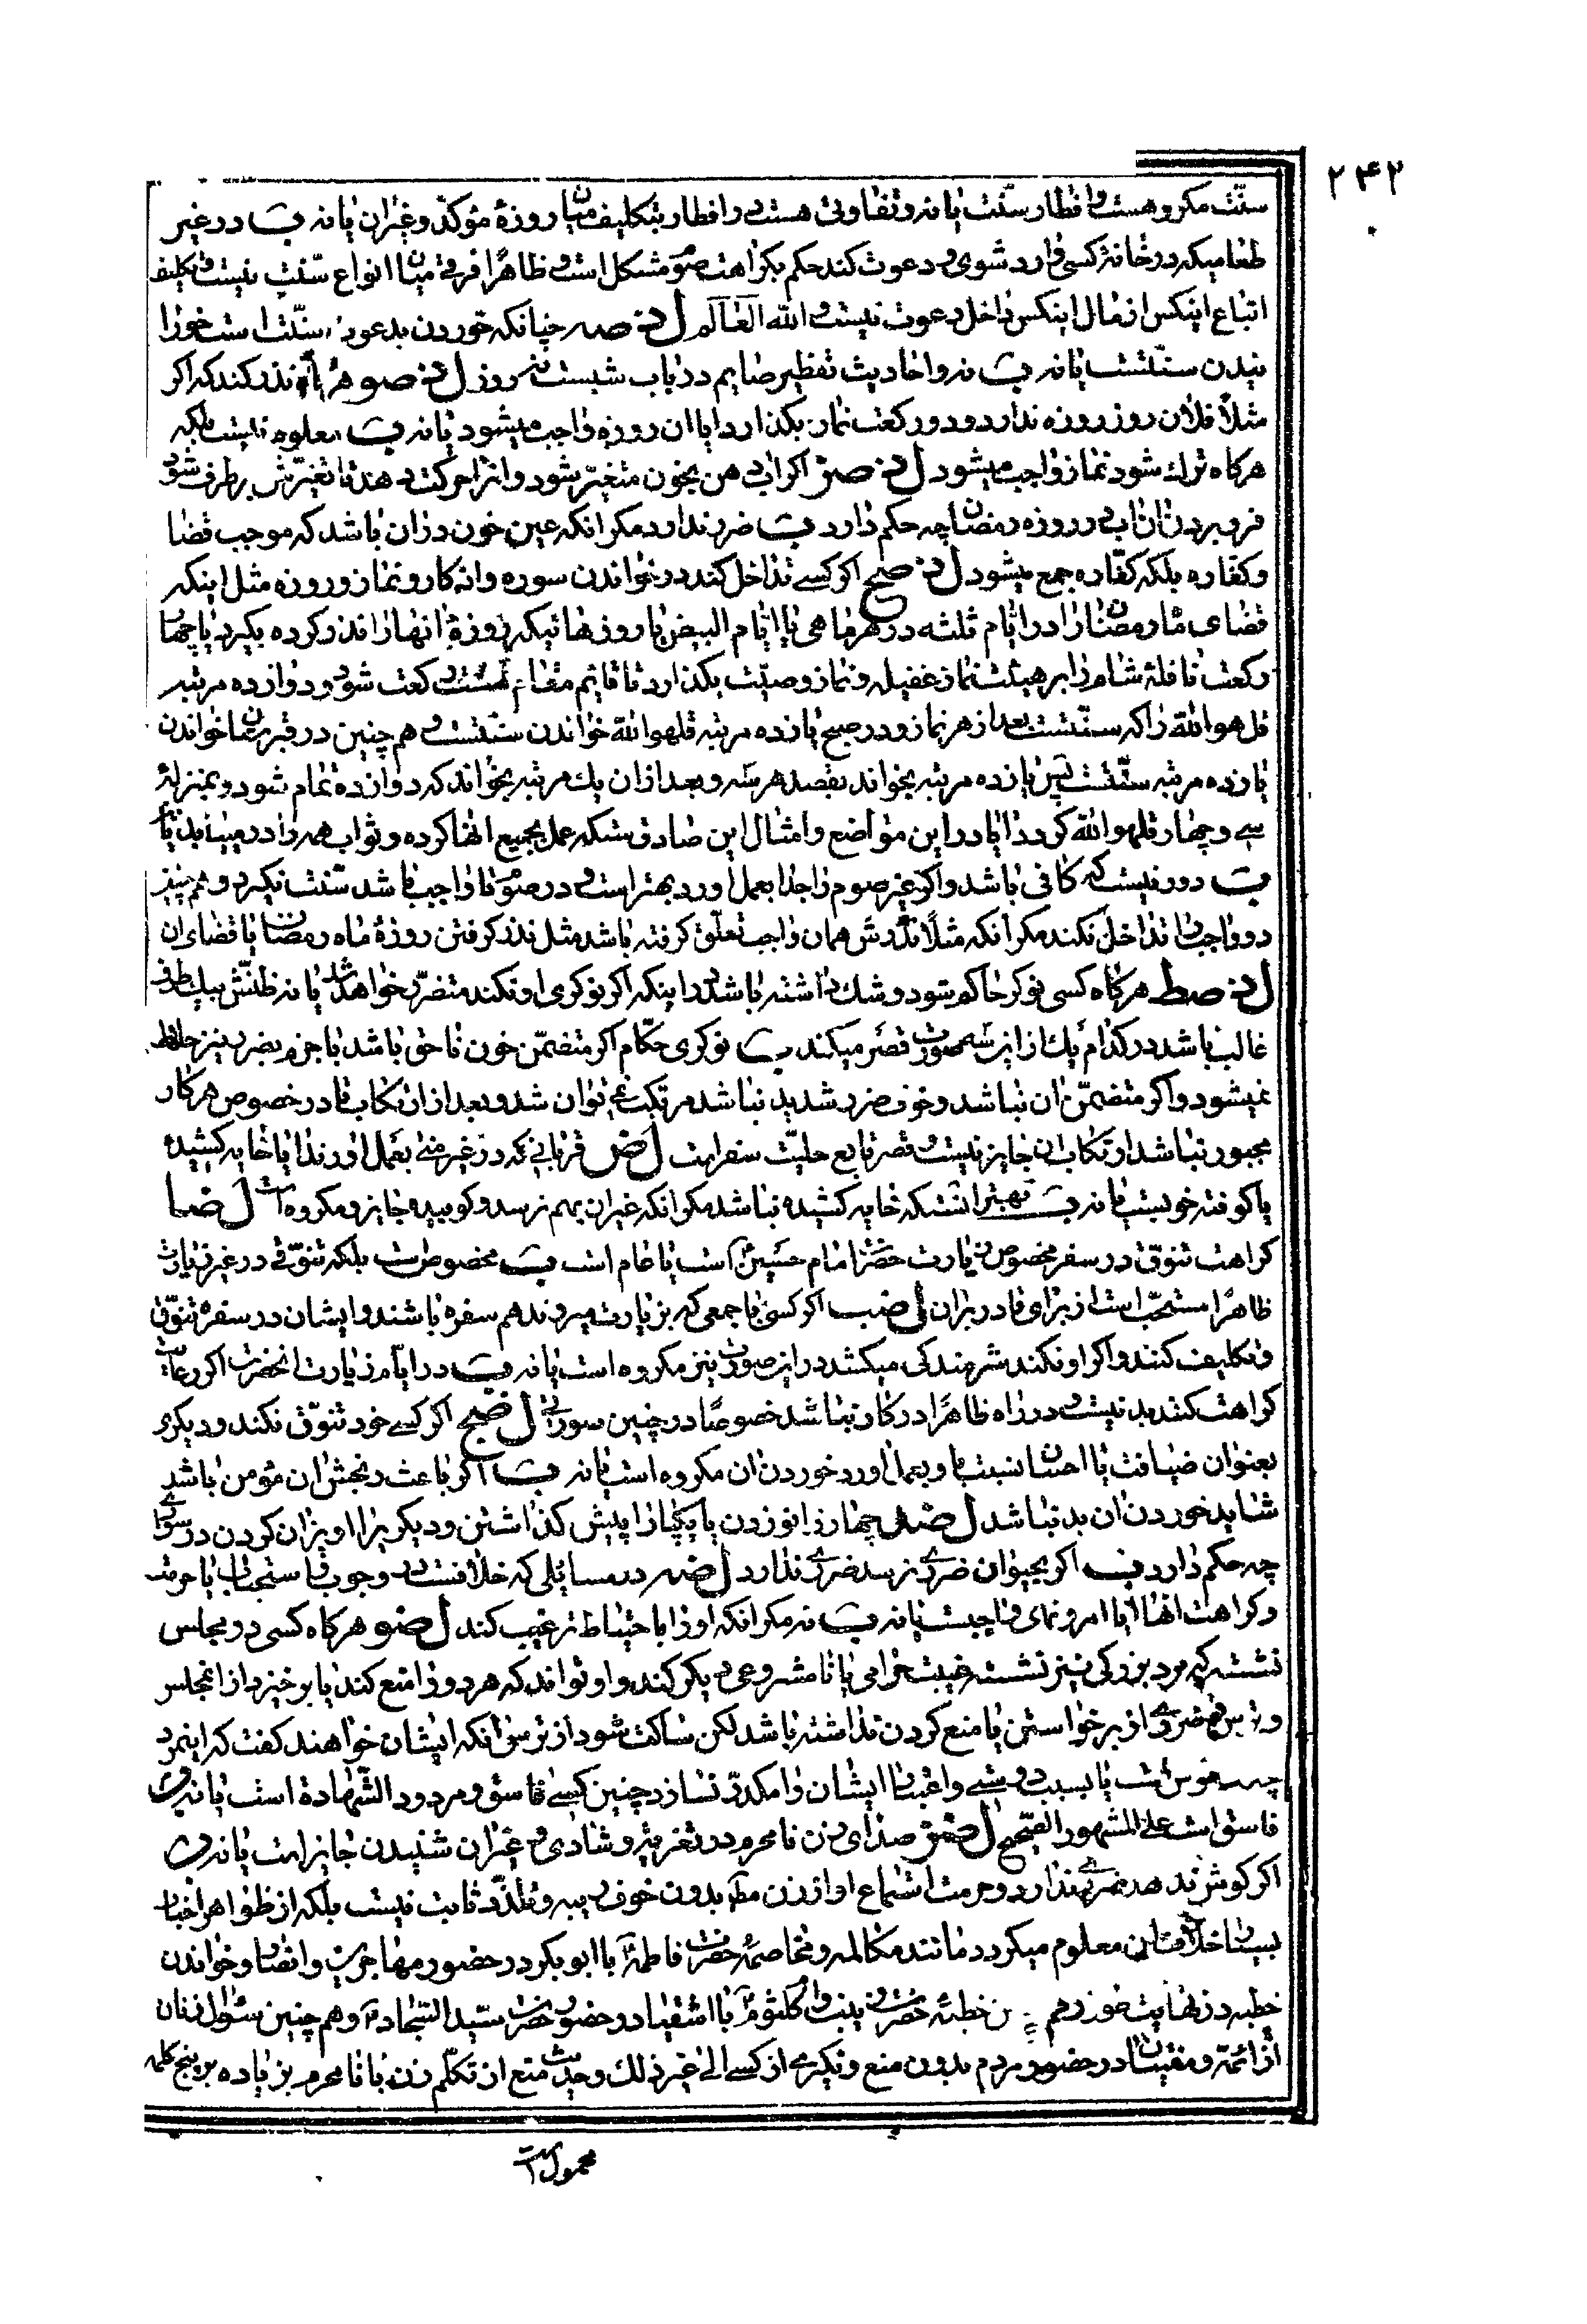 ۲۴۲
سنّت مکروهست و افطار سنّت یا نه و تفاوتی هست در افطار بتکلیف میان روزهٔ مؤکّد و غیر ان یا نه ب در غیر
طعامیکه در خانهٔ کسی وارد شوی و دعوت کند حکم بکراهت صوم مشکل است و ظاهرًا فرق میان انواع سنّت نیست و تکلیف
اتباع اینکس از مال اینکس داخل دعوت نیست و الله العالم چنانکه خوردن بدعوت سنّت است خورا
نیدن سنّتست یا نه ب نه و احادیث تفطیر صایم در باب شبست نه روز هرگاه نذر کند که اکر
مثلاً فلان روز روزه ندارد دو رکعت نماز بکذارد ایا ان روزه واجب میشود یا نه ب معلوم نیست بلکه
هرکاه ترك شود نماز واجب میشود اکر اب دهن بخون متغیّر شود و از حرکت دهد تا تغیّرش برطرف شود
فرو بردن ان اب در روزه رمضان چه حکم دارد ب ضرر ندارد مکر انکه عین خون در ان باشد که موجب قضا
و کفاره بلکه کفّاره جمع میشود اکر کسے تداخل کند در خواندن سوره و اذکار و نماز و روزه مثل اینکه
قضای ماه رمضان را در ایّام ثلثه در هر ماهی یا ایّام البیض یا روزهائیکه روزهٔ انها را نذر کرده بکیرد یا چهار
رکعت نافلهٔ شام را بر هیئت نماز غفیله و نماز وصیّت بکذارد تا قایم مقام هشت رکعت شود و دوازده مرتبه
قل هو الله را که سنّتست بعد از هر نماز و در صبح یازده مرتبه قلهو الله خواندن سنّتست و هم چنین در قبرستان خواندن
یازده مرتبه سنّتست پس یازده مرتبه بخواند بقصد هر سه و بعد از ان یك مرتبه بخواند که دوازده تمام شود و بمنزلهٔ
سے و چهار قلهو الله کردد ایا در این مواضع و امثال این صادقستکه عمل بجمیع انها کرده و ثواب همه را در میابد یا نه
ب دور نیست که کافی باشد و اکر غیر صوم را جدا بعمل اورد بهتر است و در صوم تا واجب باشد سنّت نکیرد و هم چنین
دو واجب را تداخل نکند مکر انکه مثلاً نذرش همان واجب تعلّق کرفته باشد مثل نذر کرفتن روزهٔ ماه رمضان یا قضای ان
هرکاه کسی نوکر حاکم شود و شك داشته باشد در اینکه اکر نوکری او نکند متضرّر خواهد شد یا نه ظنّش بیك طرف
غالب باشد در کدام یك از این سه صورت قصر میکند ب نوکری حکّام اکر متضمّن خون ناحق باشد با جزم بضرر نیز حلال
نمیشود و اکر متضمّن ان نباشد و خوف ضرر شدید نباشد مرتکب نمیتوان شد و بعد از ارتکاب تا در خصوص هر کار
مجبور نباشد ارتکاب ان جایز نیست و قصر تابع حلیّت سفر است قربانی که در غیر منی بعمل اورند ایا خایه کشیده
یا کوفته خوبست یا نه ب بهتر انستکه خایه کشیده نباشد مکر انکه غیر ان بهم نرسد و کوبیده جایز و مکروه است
کراهت تنوّق در سفر مخصوص زیارت حضرت امام حسین است یا عام است ب مخصوص است بلکه تنوّق در غیر زیارت
ظاهرًا مستحبّ است از برای قادر بر ان اکر کسی با جمعی که بزیارت میروند هم سفره باشند و ایشان در سفره تنوّق
و تکلیف کنند و اکر او نکند شرمندکی میکشد در این صورت نیز مکروه است یا نه ب در ایّام زیارت انحضرت اکر رعایت
کراهت کنند بد نیست و در راه ظاهرًا در کار نباشد خصوصًا در چنین صورت اکر کسے خود تنوّق نکند و دیکری
بعنوان ضیافت یا احسان نسبت باو بعمل اورد خوردن ان مکروه است یا نه ب اکر باعث رنجش ان مؤمن باشد
شاید خوردن ان بد نباشد چهار زانو زدن یا یکپا را پیش کذاشتن و دیکری را اویزان کردن در سواری
چه حکم دارد ب اکر بحیوان ضرری نرسد ضرری ندارد در مسائلی که خلافست در وجوب و استحباب یا حرمت
و کراهت انها ایا امر و نهی واجبست یا نه ب نه مکر انکه او را باحتیاط ترغیب کند هرکاه کسی در مجلس
نشسته که مرد بزرکی نیز نشسته غیبت حرامی یا نامشروعی دیکر کند و او تواند که هر دو را منع کند یا برخیزد از انمجلس
و ترس ضرری از برخواستن یا منع کردن نداشته باشد لکن ساکت شود از ترس انکه ایشان خواهند کفت که اینمرد
چه یا بسبب دوستے و اغبنا ایشان را مکدّر نسازد چنین کسے فاسق و مردود الشّهادة است یا نه ب
فاسق است علی المشهور الصّحیح صدای زن نامحرم در تعزیه و شادی و غیر ان شنیدن جایز است یا نه ب
اکر کوش ندهد ضرری ندارد و حرمت استماع اواز زن مطلقا بدون خوف ریبه و تلذّذ ثابت نیست بلکه از ظواهر اخبار
بسیار خلاف ان معلوم میکردد مانند مکالمه و مخاصمهٔ حضرت فاطمه با ابو بکر در حضور مهاجرین و انصار و خواندن
خطبه در نهایت طول و هم چنین خطبهٔ حضرت زینب و ام کلثوم با اشقیا در حضور حضرت سیّد السّجاد و هم چنین سؤال زنان
از ائمّه و مفتیان در حضور مردم بدون منع و نکیری از کسے الی غیر ذلك و حدیث منع از تکلّم زن با نامحرم بزیاده بر پنج کلمه
محمول است